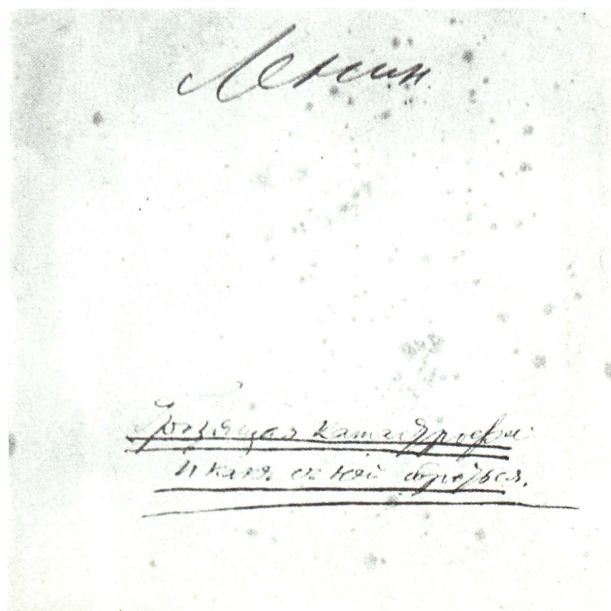 Ленин
Грозящая катастрофа
и какъ съ ней бороться.